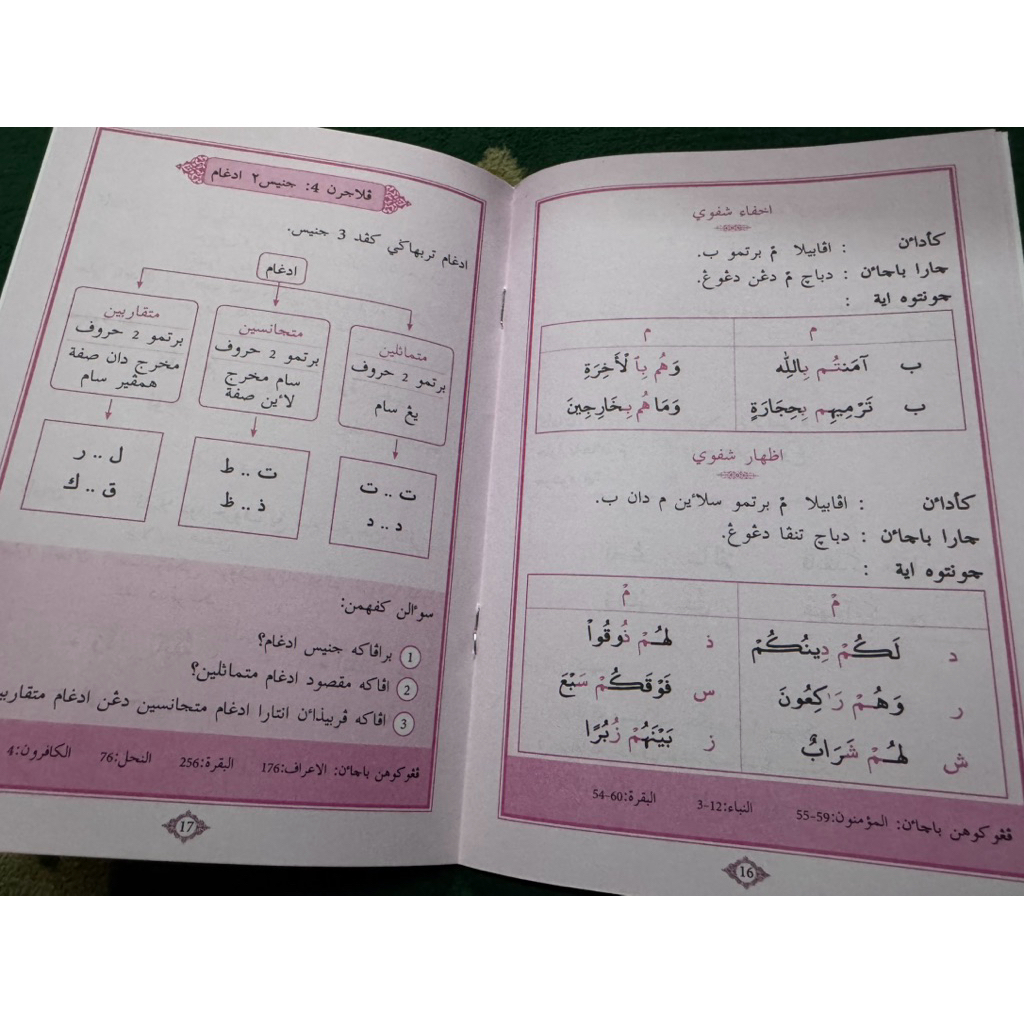 اخفاء شفوي
كأداءن : اڤابيلا مْ برتمو ب.
چارا باچاءن : دباچ مْ دڠن دڠوڠ.
چونتوه اية :
م م
ب آمَنتُم بِاللّٰه وَهُم بِٱلْأَخِرَةِ
ب تَرْمِيهِم بِحِجَارَةٍ وَمَا هُم بِخَارِجِينَ
اظهار شفوي
كأداءن : اڤابيلا مْ برتمو سلاءين م دان ب.
چارا باچاءن : دباچ تنڤا دڠوڠ.
چونتوه اية :
مْ مْ
د لَكُمْ دِينُكُمْ ذ لَهُمْ ذُوقُوا۟
ر وَهُمْ رَاكِعُونَ س فَوْقَكُمْ سَبْعَ
ش لَهُمْ شَرَابٌ ز بَيْنَهُمْ زُبُرًا
ڤڠوكوهن باچاءن: المؤمنون:59-55 النباء:12-3 البقرة:60-54
16
ڤلاجرن 4: جنيس٢ ادغام
ادغام تربهاݢي كڤد 3 جنيس.
ادغام
متماثلين
برتمو 2 حروف
يڠ سام
ت .. ت
د .. د
متجانسين
برتمو 2 حروف
سام مخرج
لاءين صفة
ت .. ط
ذ .. ظ
متقاربين
برتمو 2 حروف
مخرج دان صفة
همڤير سام
ل .. ر
ق .. ك
سوءالن كفهمن:
1 براڤاكه جنيس ادغام؟
2 اڤاكه مقصود ادغام متماثلين؟
3 اڤاكه ڤربيذاءن انتارا ادغام متجانسين دڠن ادغام
ڤڠوكوهن باچاءن: الاعراف:176 البقرة:256 النحل:76 الكافرون:4
17